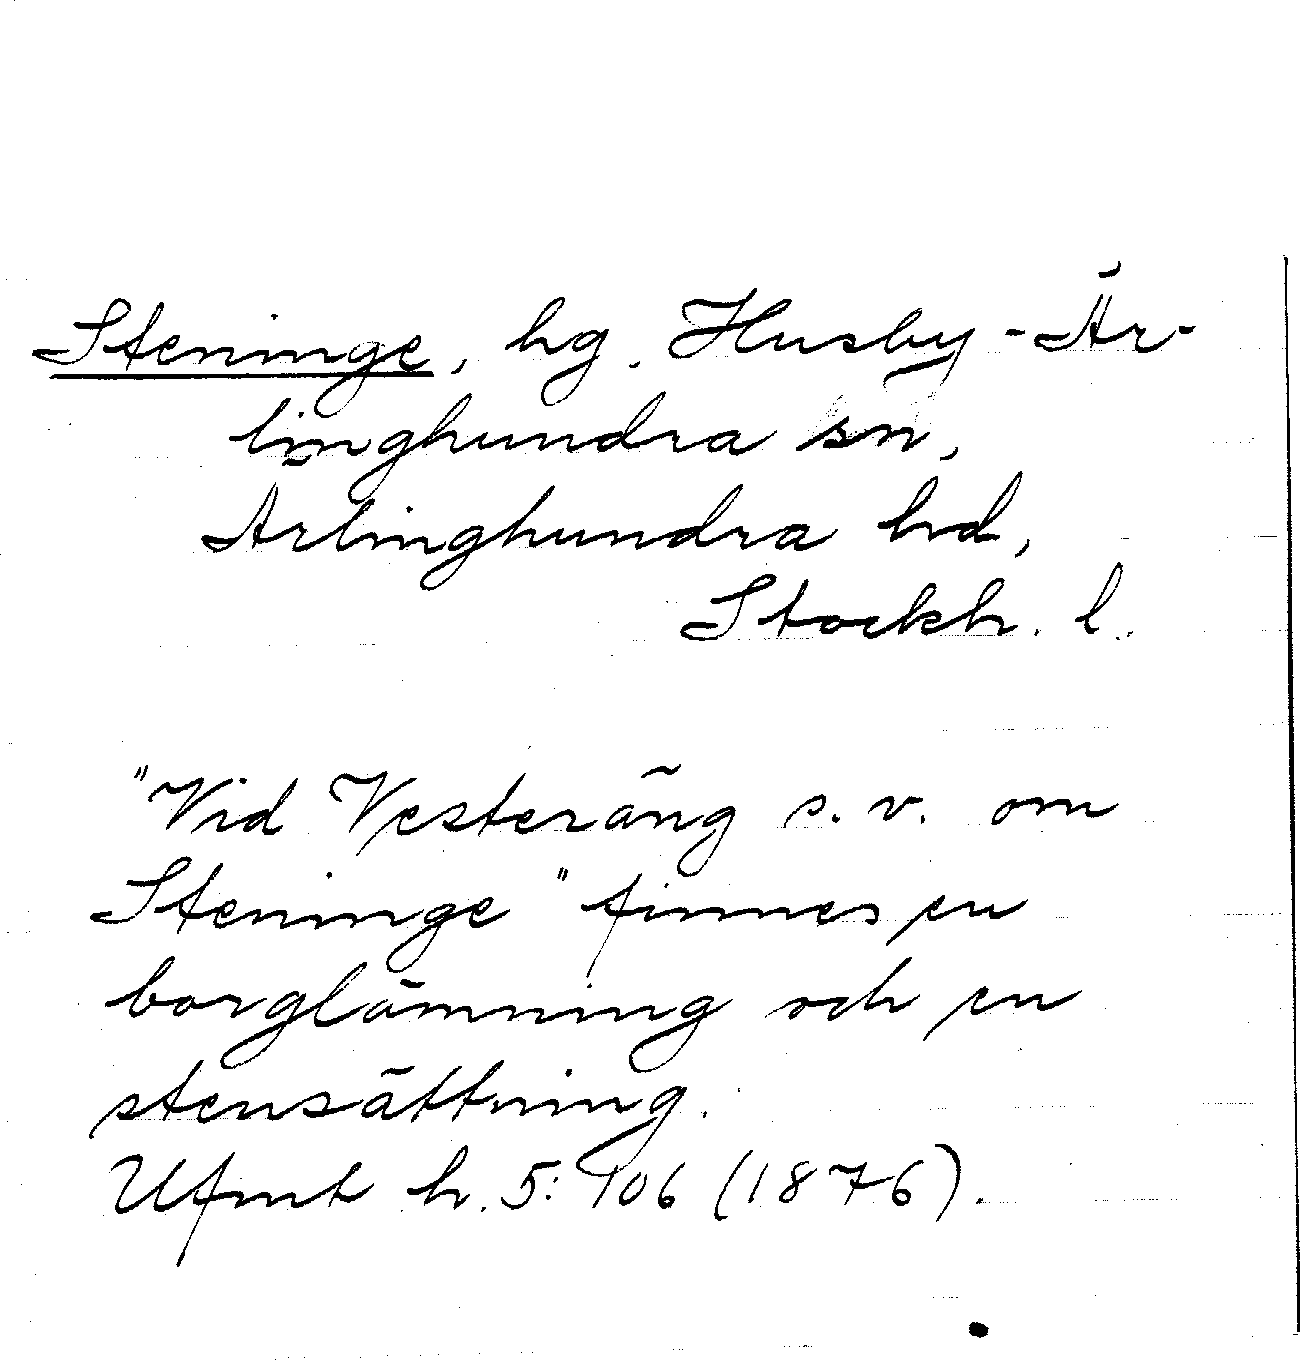 Steninge, hg. Husby-Är-
linghundra sn,
Ärlinghundra hd,
Stockh. l.
"Vid Vesteräng s.v. om
Steninge" finnes en
borglämning och en
stensättning.
Ufmt h. 5: 106 (1876).